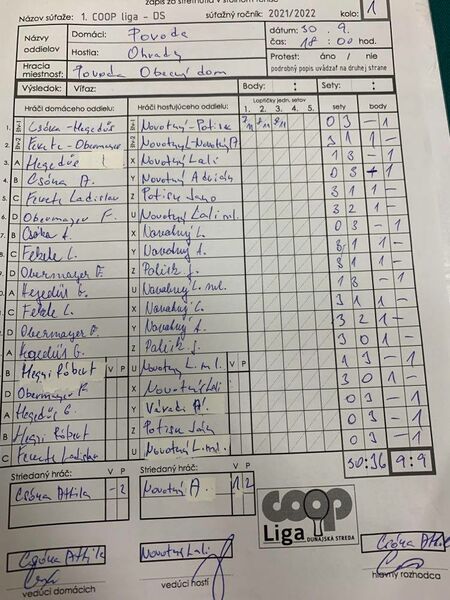 zápis zo stretnutia v stolnom tenise
Názov súťaže: 1. COOP liga - DS súťažný ročník: 2021/2022 kolo: 1
Názvy oddielov Domáci: Povoda dátum: 30. 9.
Hostia: Ohrady čas: 18 00 hod.
Hracia miestnosť: Povoda Obecný dom Protest: áno / nie
podrobný popis uvádzať na druhej strane
Výsledok: Víťaz: Body: :  Sety: :
Hráči domáceho oddielu: Hráči hosťujúceho oddielu: Loptičky jedn. setov sety body
1. 2. 3. 4. 5.
Csóka - Hegedűs Novotný - Potisk 0 3 - 1
Fekete - Obermayer Novotný - Novotný A 3 1 1 -
A Hegedűs X Novotný Lali 1 3 - 1
B Csóka A. Y Novotný Adrián 0 3 1
C Fekete Ladislav Z Potisk Jano 3 1 1 -
D Obermayer F. U Novotný Lali ml. 3 2 1 -
B Csóka A. X Novotný L. 0 3 - 1
C Fekete L. Y Novotný A. 3 1 1 -
D Obermayer F. Z Potisk J. 3 1 1 -
A Hegedűs G. U Novotný L. ml. 1 3 - 1
C Fekete L. X Novotný L. 3 1 1 -
D Obermayer F. Y Novotný A. 3 2 1 -
A Hegedűs G. Z Potisk J. 3 0 1 -
B Hegyi Róbert V P U Novotný L. ml. V P 1 3 - 1
D Obermayer F. X Novotný Lali 3 0 1 -
A Hegedűs G. Y Váradi A. 0 3 - 1
B Hegyi Róbert Z Potisk Jano 0 3 - 1
C Fekete Ladislav U Novotný L. ml. 0 3 - 1
9:9
Striedaný hráč: V P Striedaný hráč: V P
Csóka Attila - 2 Novotný A. 1 2
coop
Liga DUNAJSKÁ STREDA
Csóka Attila Novotný Lali Csóka Attila
vedúci domácich vedúci hostí hlavný rozhodca